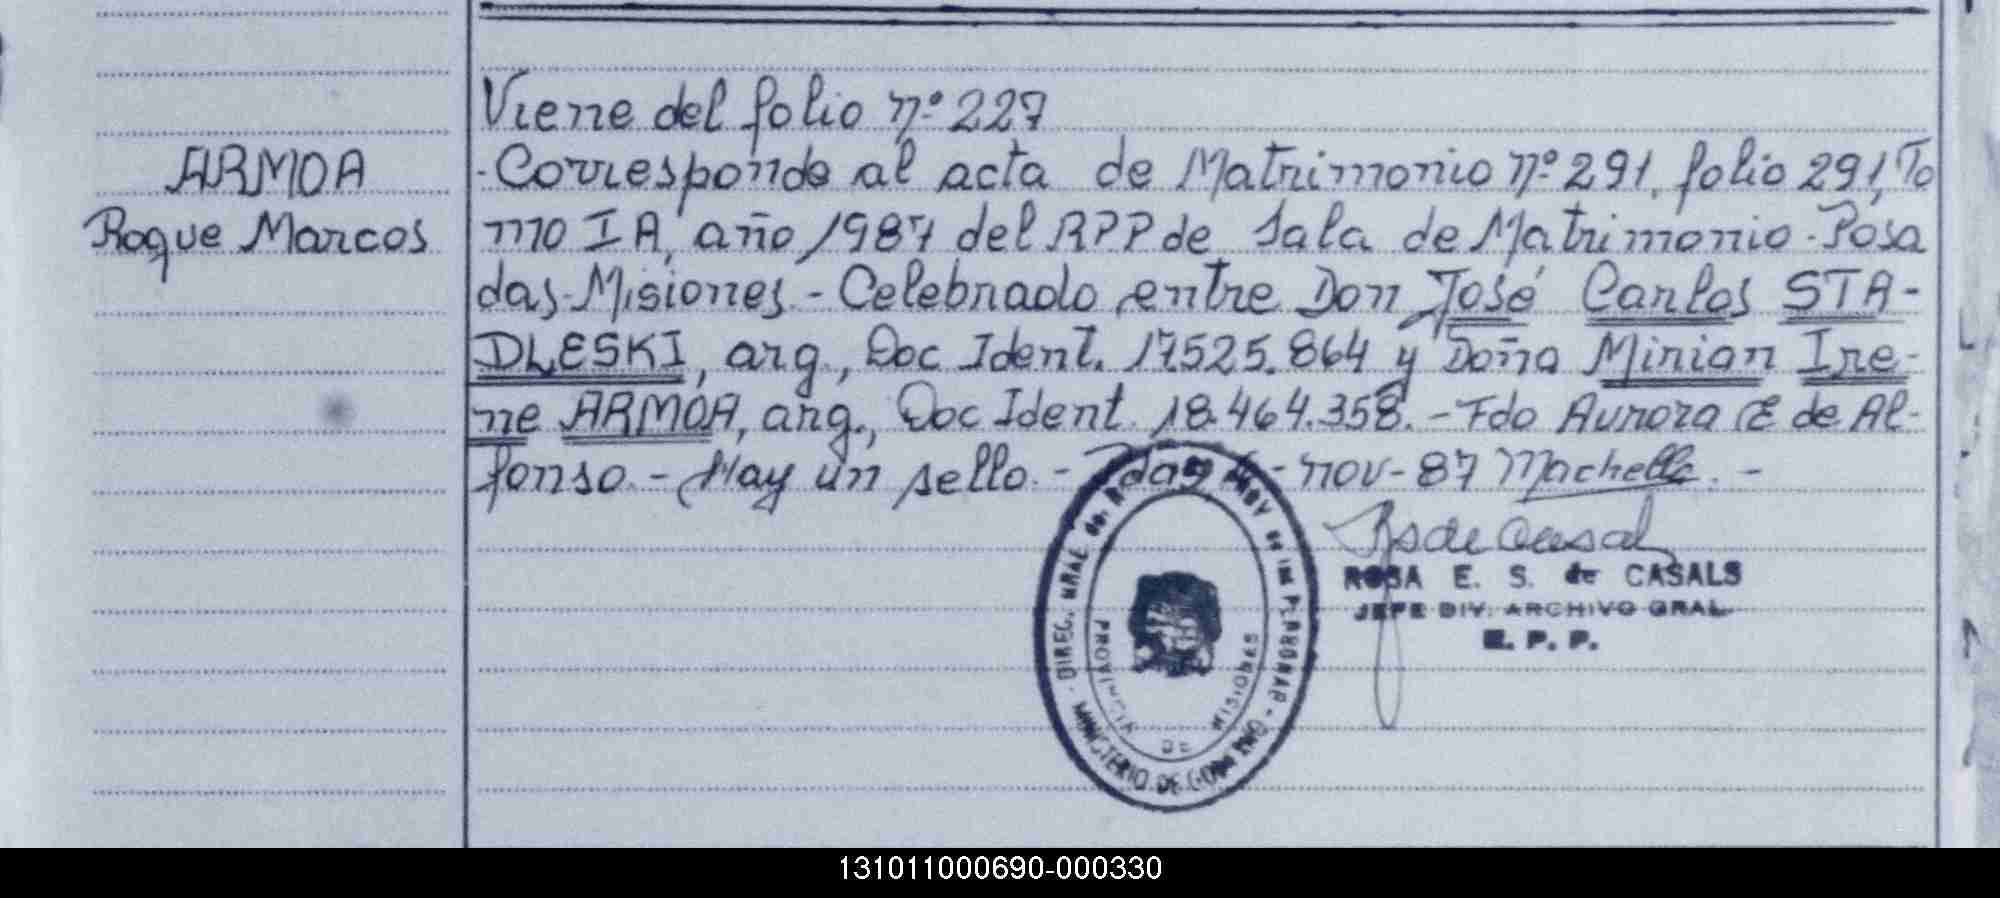 Viene del folio nº 227
ARMOA
Roque Marcos
-Corresponde al acta de Matrimonio nº 291, folio 291, To
mo I A, año 1987 del RPP de Sala de Matrimonio - Posa
das - Misiones - Celebrado entre Don José Carlos STA-
DLESKI, arg., Doc Ident. 17525.864 y Doña Mirian Ire-
ne ARMOA, arg., Doc Ident. 18.464.358. - Fdo Aurora E de Al-
fonso. - Hay un sello. - Pdas - nov - 87 Machello. -
ROSA E. S. de CASALS
JEFE DIV. ARCHIVO GRAL.
R. P. P.
DIREC. GRAL de PROV DE
PROVINCIA DE MISIONES
MINISTERIO DE GOBIERNO
131011000690-000330